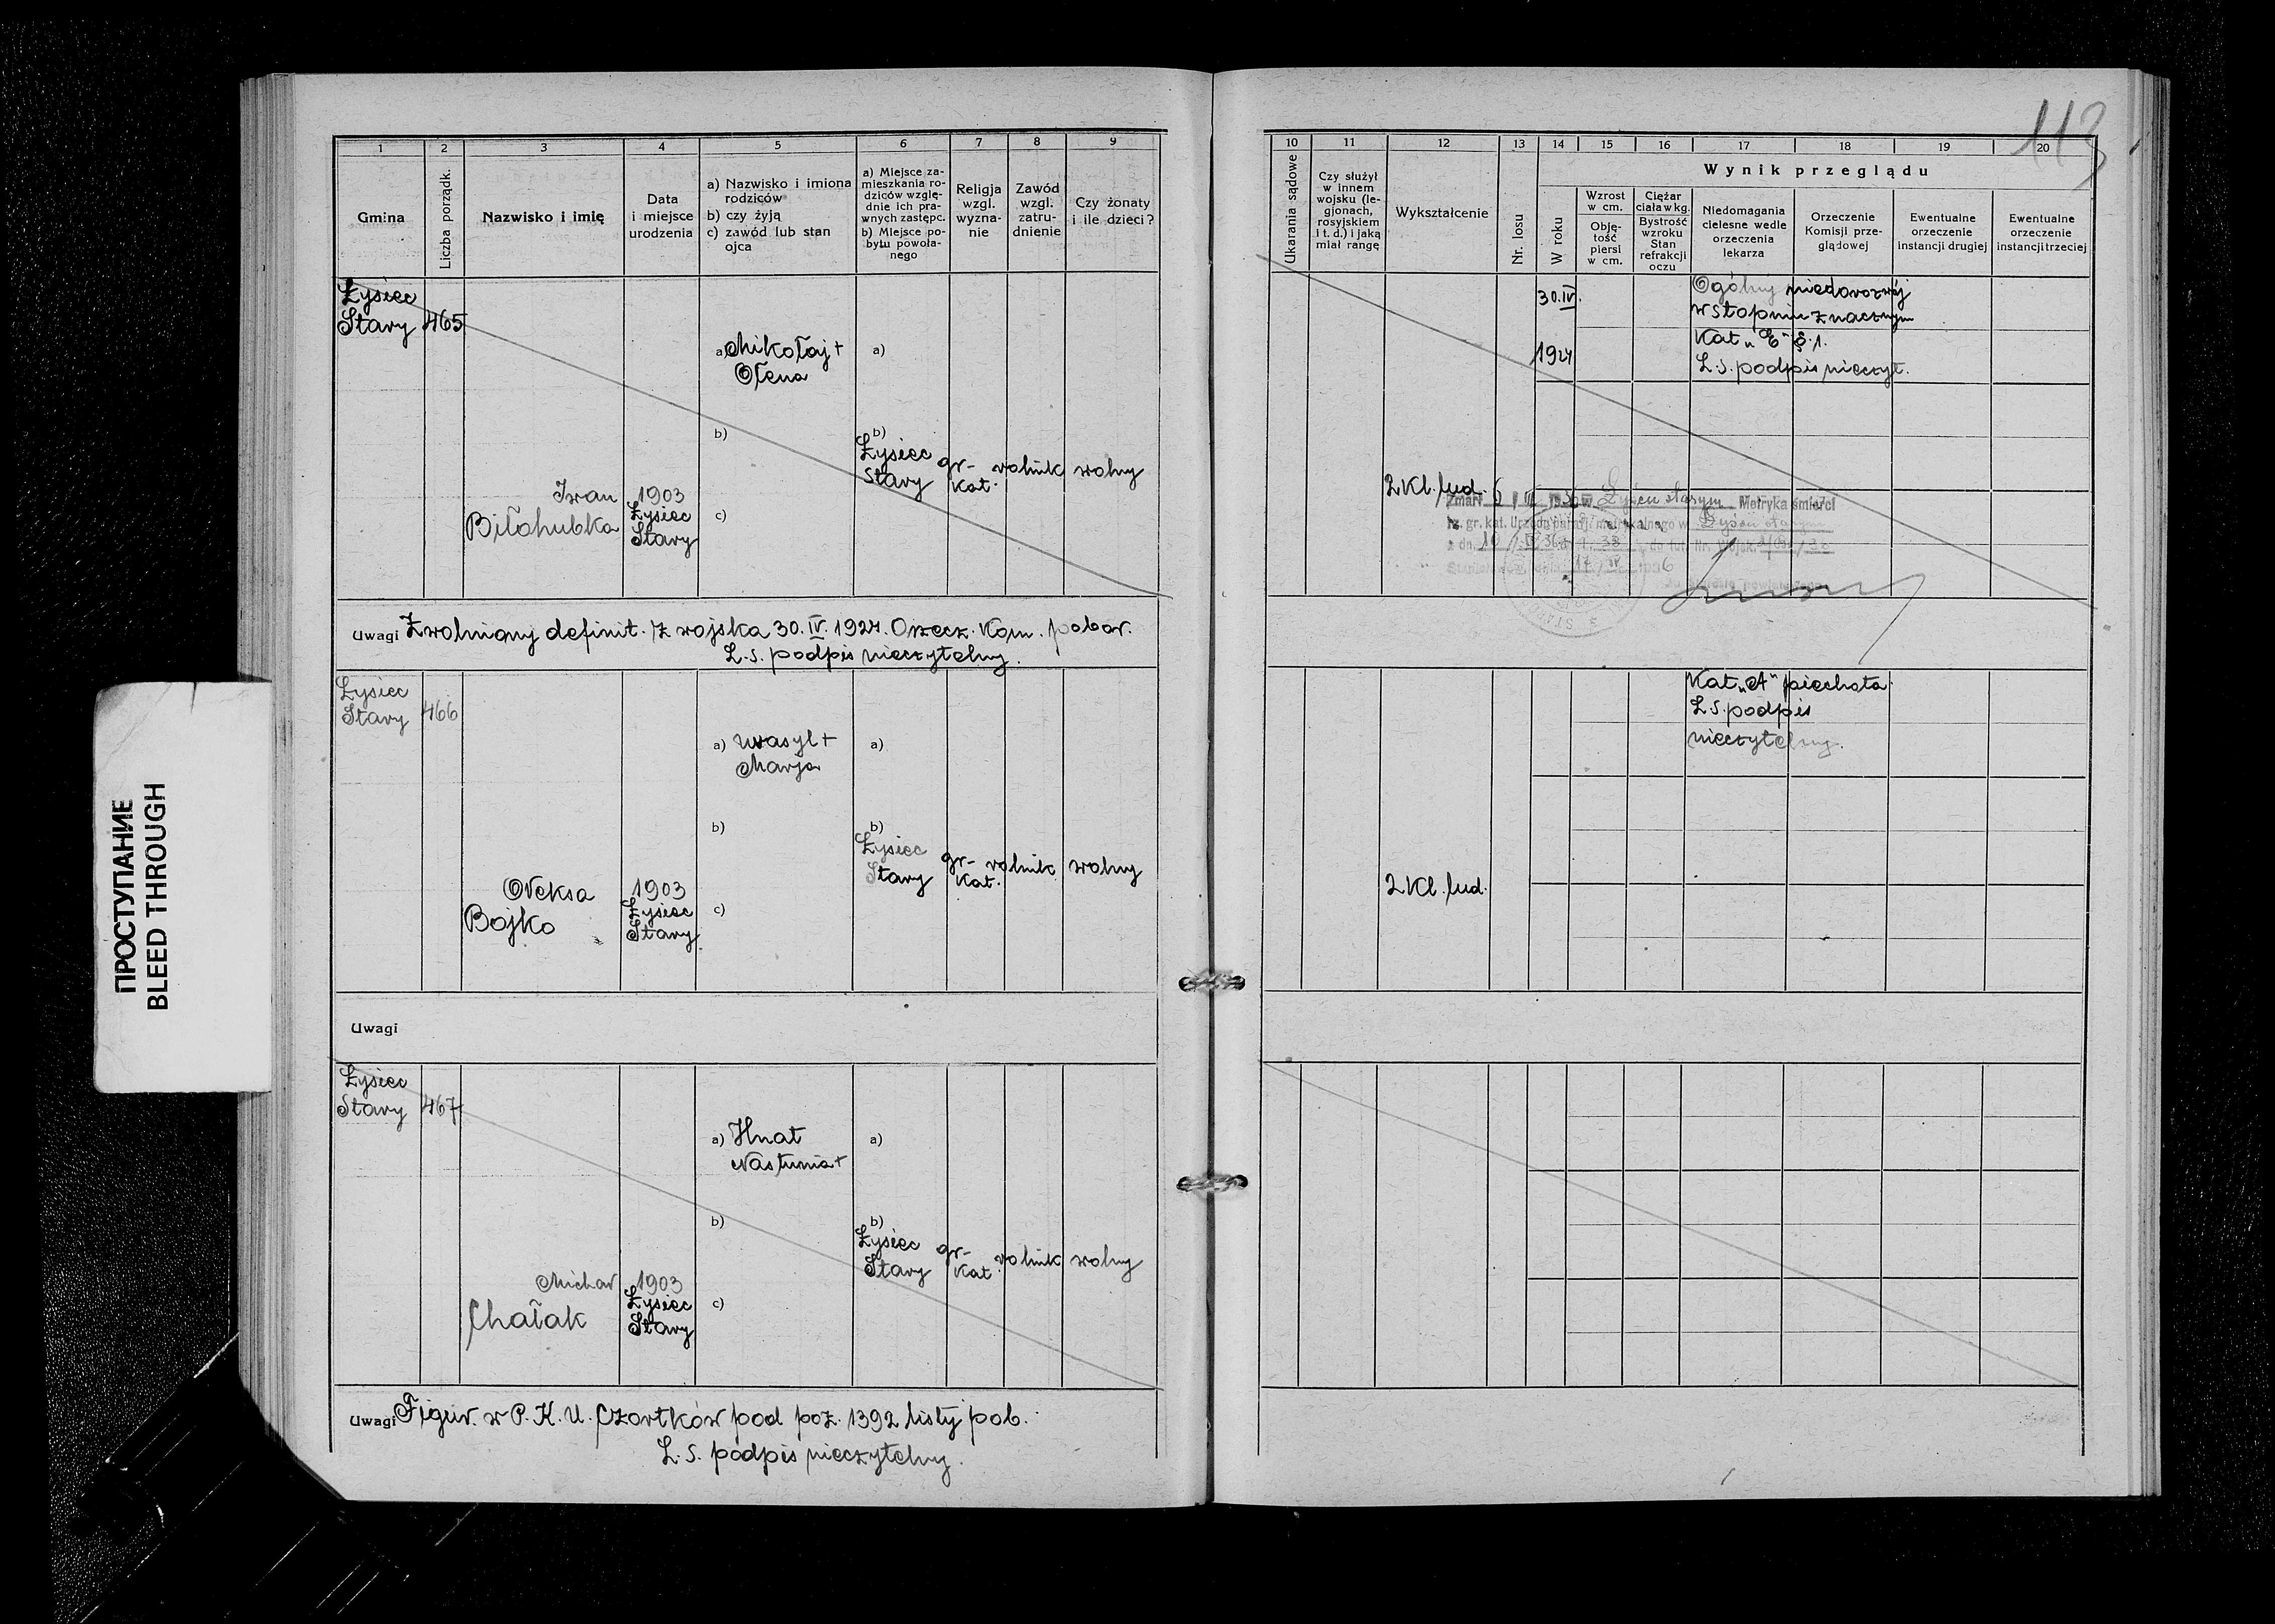 113
1
2
3
4
5
6
7
8
9
Gmina
Liczba porządk.
Nazwisko i imię
Data
i miejsce
urodzenia
a) Nazwisko i imiona
rodziców
b) czy żyją
c) zawód lub stan
ojca
a) Miejsce za-
mieszkania ro-
dziców wzglę-
dnie ich pra-
wnych zastępc.
b) Miejsce po-
bytu powoła-
nego
Religja
wzgl.
wyzna-
nie
Zawód
wzgl.
zatru-
dnienie
Czy żonaty
i ile dzieci?
10
11
12
13
14
15
16
17
18
19
20
Ukarania sądowe
Czy służył
w innem
wojsku (le-
gjonach,
rosyjskiem
i t. d.) i jaką
miał rangę
Wykształcenie
Nr. losu
Wynik przeglądu
W roku
Wzrost
w cm.
Obję-
tość
piersi
w cm.
Ciężar
ciała w kg.
Bystrość
wzroku
Stan
refrakcji
oczu
Niedomagania
cielesne wedle
orzeczenia
lekarza
Orzeczenie
Komisji prze-
glądowej
Ewentualne
orzeczenie
instancji drugiej
Ewentualne
orzeczenie
instancji trzeciej
Łysiec
Stary 465
Iwan
Biłohubka
1903
Łysiec
Stary
a) Mikołaj +
Ołena
b)
c)
a)
b)
Łysiec
Stary
gr-
kat.
rolnik
wolny
2 Kl. lud.
30.IV.
1924
Ogólny niedorozwój
w stopniu znacznym
Kat „E" §.1.
L.S. podpis nieczyt.
Zmarł 6 w Łyścu starym Metryka śmierci
gr. kat. Urzędu parafj. metrykalnego w Łyścu starym
z dn. 10 IV 36 l. 38 do tut. Nr. Wojsk.
17 IV 1936
Uwagi Zwolniony definit. z wojska 30.IV.1924. Orzecz. Kom. pobor.
L.S. podpis nieczytelny.
Łysiec
Stary 466
Oleksa
Bojko
1903
Łysiec
Stary
a) Wasyl +
Marja
b)
c)
a)
b)
Łysiec
Stary
gr-
kat.
rolnik
wolny
2 Kl. lud.
Kat „A" piechota
L.S. podpis
nieczytelny.
Uwagi
Łysiec
Stary 467
Michał
Chałak
1903
Łysiec
Stary
a) Hnat
Nastunia +
b)
c)
a)
b)
Łysiec
Stary
gr-
kat
rolnik
wolny
Uwagi Figur. w P.K.U. Czortków pod poz. 1392 listy pob.
L.S. podpis nieczytelny.
ПРОСТУПАНИЕ
BLEED THROUGH